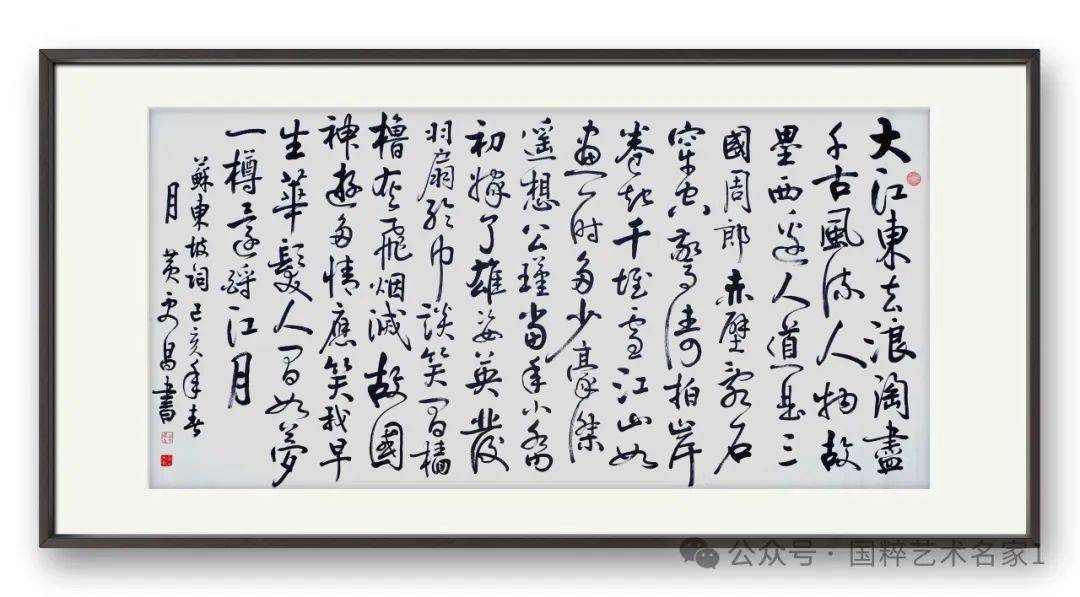 大江東去浪淘盡
千古風流人物故
壘西邊人道是三
國周郎赤壁亂石
穿空驚濤拍岸
卷起千堆雪江山如
畫一时多少豪傑
遥想公瑾當年小喬
初嫁了雄姿英發
羽扇綸巾談笑間檣
櫓灰飛烟滅故國
神遊多情應笑我早
生華髮人間如夢
一樽還酹江月
蘇東坡詞己亥年春
月 黄昌書
公众号 · 国粹艺术名家1